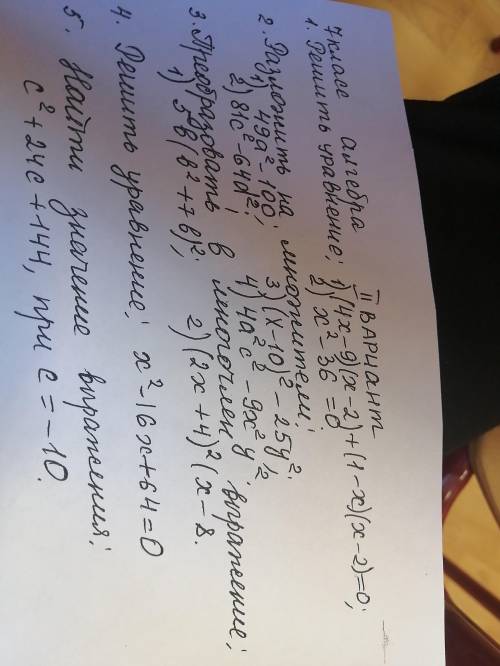 7 класс алгебра II вариант
1. Решить уравнение: 1) (4x-9)(x-2)+(1-x)(x-2)=0;
2) x² - 36 = 0
2. Разложить на множители:
1) 49a² - 100; 3) (x-10)² - 25y²;
2) 81c² - 64d²; 4) 4a²c² - 9x²y²
3. Преобразовать в многочлен выражение:
1) 5b(b²+7b)²; 2) (2x+4)²(x-8.
4. Решить уравнение: x²-16x+64=0
5. Найти значение выражения:
c²+24c+144, при c = -10.